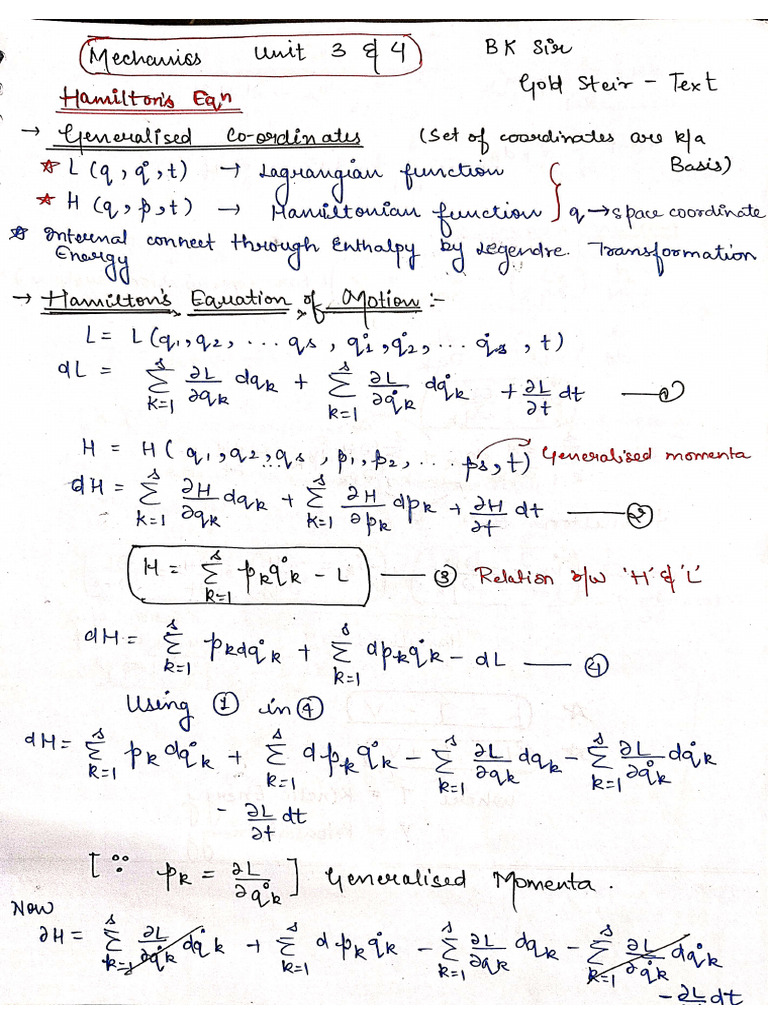 Mechanics Unit 3 & 4
BK Sir
Gold Stein - Text
Hamilton's Eqn
→ Generalised co-ordinates (Set of coordinates are k/a Basis)
☆ L (q, q̇, t) → Lagrangian function
☆ H (q, p, t) → Hamiltonian function } q → space coordinate
☆ Internal Energy connect through Enthalpy by Legendre. Transformation
→ Hamilton's Equation of Motion :-
L = L(q₁, q₂, ... qs, q̇₁, q̇₂, ... q̇s, t)
dL = s∑k=1 ∂L/∂qk dqk + s∑k=1 ∂L/∂q̇k dq̇k + ∂L/∂t dt —— ①
H = H( q₁, q₂, ... qs, p₁, p₂, ... ps, t) Generalised momenta
dH = s∑k=1 ∂H/∂qk dqk + s∑k=1 ∂H/∂pk dpk + ∂H/∂t dt —— ②
H = s∑k=1 pk q̇k - L —— ③ Relation b/w 'H' & 'L'
dH = s∑k=1 pk dq̇k + s∑k=1 dpk q̇k - dL —— ④
Using ① in ④
dH = s∑k=1 pk dq̇k + s∑k=1 dpk q̇k - s∑k=1 ∂L/∂qk dqk - s∑k=1 ∂L/∂q̇k dq̇k
- ∂L/∂t dt
[∵ pk = ∂L/∂q̇k] Generalised Momenta.
Now
∂H = s∑k=1 ∂L/∂q̇k dq̇k + s∑k=1 dpk q̇k - s∑k=1 ∂L/∂qk dqk - s∑k=1 ∂L/∂q̇k dq̇k
- ∂L/∂t dt